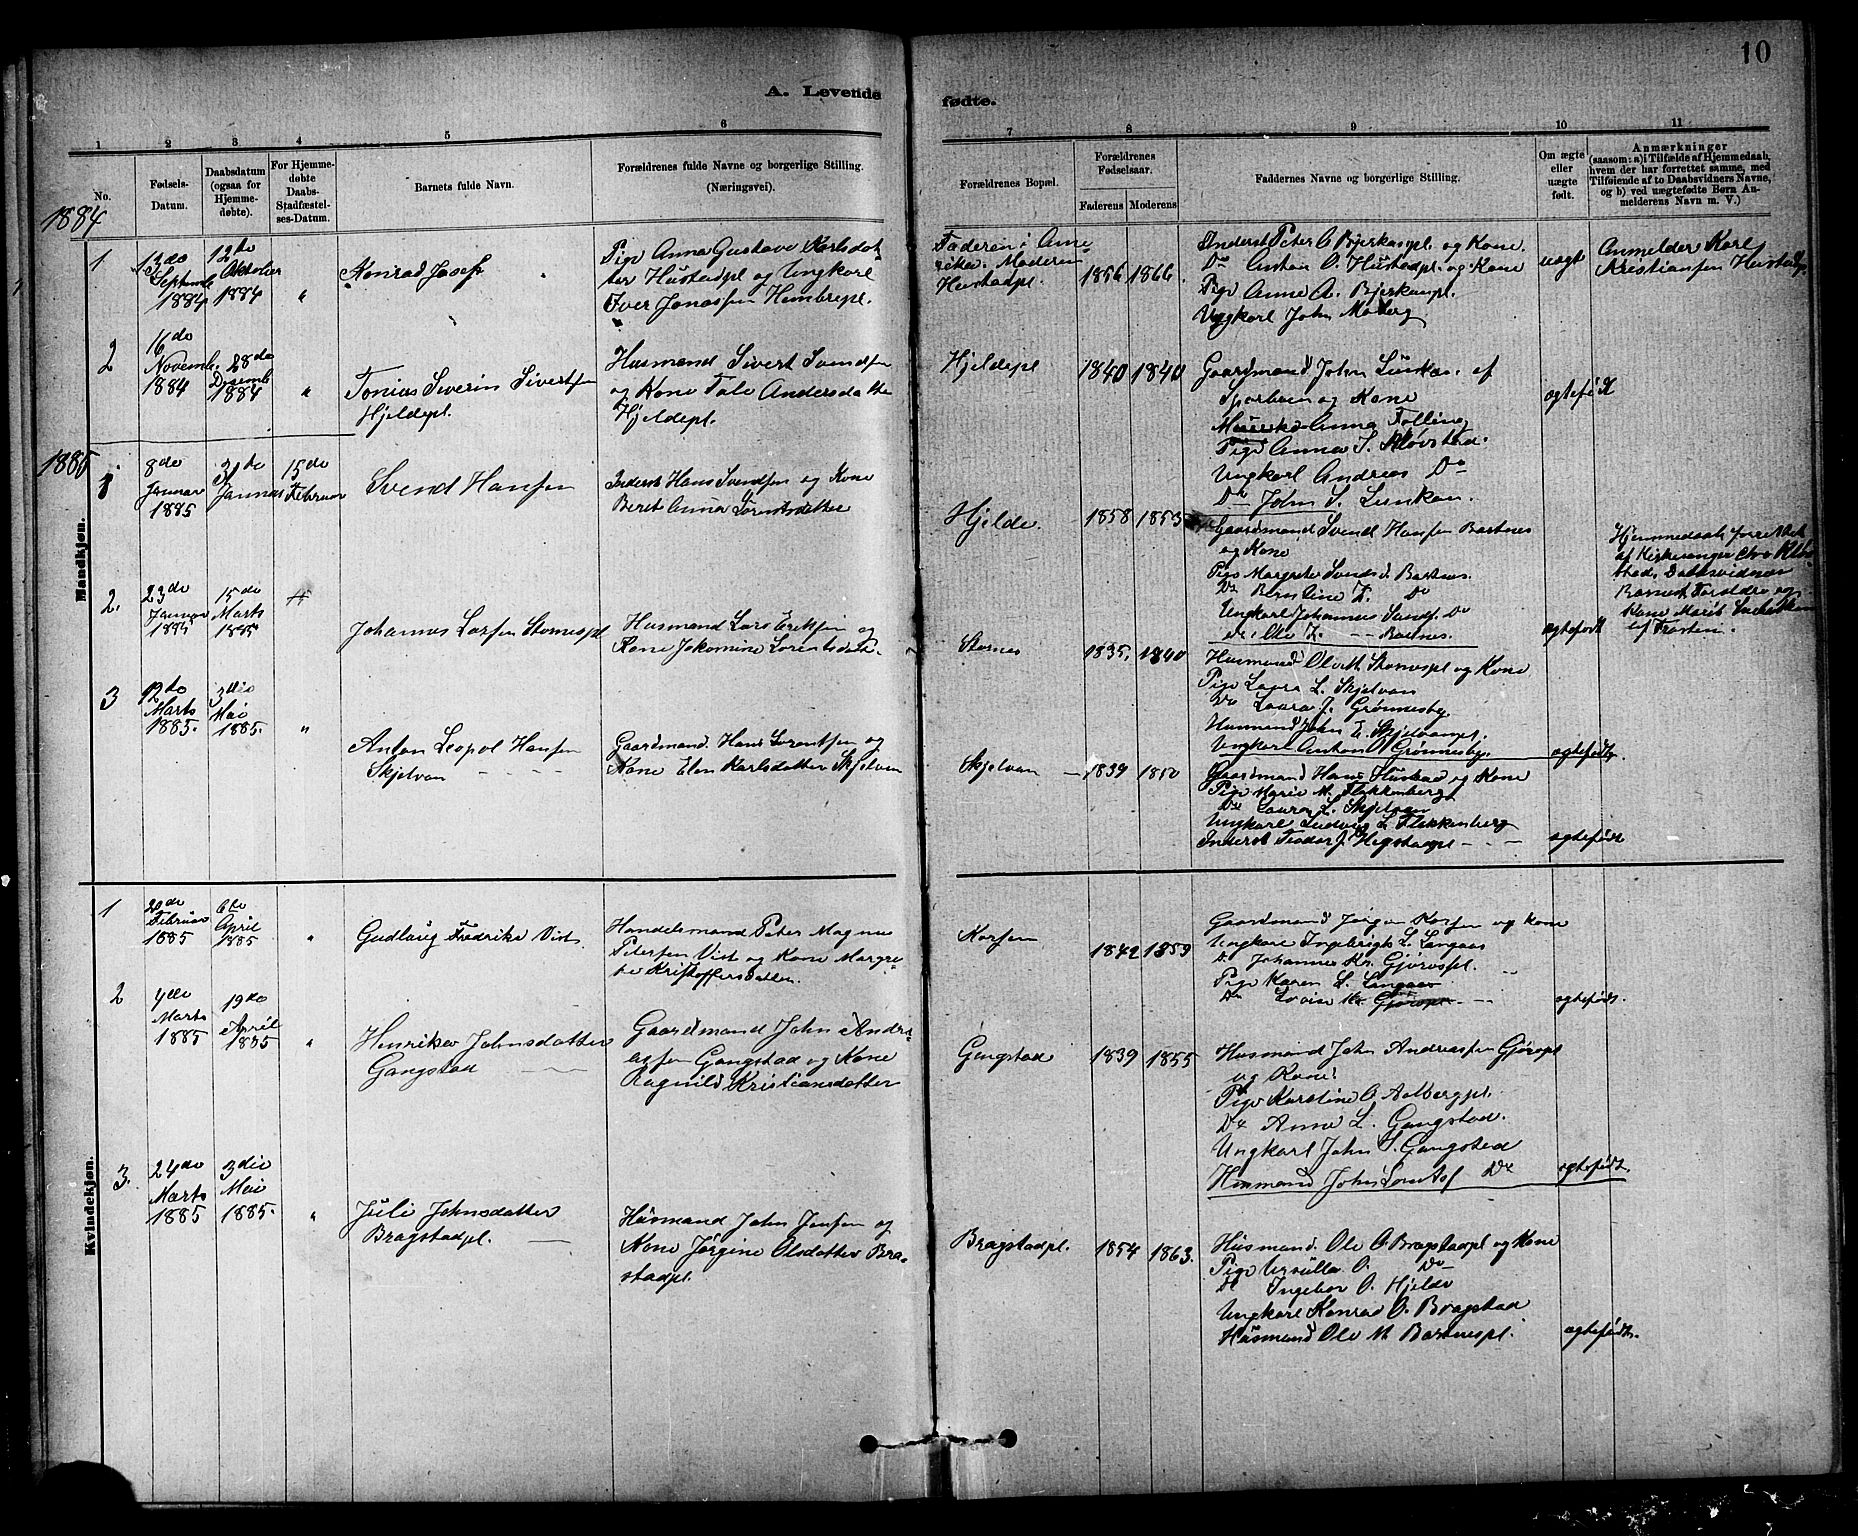 10
A. Levende
fødte.
1 2 3 4 5 6
7 8 9 10 11
No.
Fødsels-Datum.
Daabsdatum (ogsaa for Hjemme-døbte).
For Hjemme-døbte Daabs-Stadfæstel-ses-Datum.
Barnets fulde Navn.
Forældrenes fulde Navne og borgerlige Stilling. (Næringsvei).
Forældrenes Bopæl.
Forældrenes Fødselsaar.
Faderens Moderens
Faddernes Navne og borgerlige Stilling.
Om ægte eller uægte født.
Anmærkninger
(saasom: a) i Tilfælde af Hjemmedaab, hvem der har forrettet samme, med Tilføiende af to Daabsvidners Navne, og b) ved uægtefødte Børn An-melderens Navn m. V.)
1884
Mandkjøn.
1
13do Septemb. 1884
12te Oktober 1884
"
Konrad Josef
Pige Anna Gustava Karlsdat-
ter Hustadpl og Ungkarl
Iver Jonassen Hembrepl.
Faderen i Ame-
rika. Moderen
Hustadpl.
1856 1866
Inderst Peter O Bjerkaspl og Kone
Do Anton O. Hustadpl. og Kone
Pige Anne A. Bjerkaspl.
Ungkarl John Moberg
uægt
Anmelder Karl
Kristiansen Hustadpl
2
16do Novemb. 1884
28do Desemb 1884
"
Tonias Severin Sivertsen
Hjeldepl.
Husmand Sivert Svendsen
og Kone Tale Andersdatter
Hjeldepl.
Hjeldepl
1840 1840
Gaardmand John Lunkan af
Sparbuen og Kone
Anna Følling
Pige Anna S. Kløvstad.
Ungkarl Andreas Do
Do John S. Lunkan.
ægtefødt
1885
1
8do Januar 1885
31do Januar
15do Februar
Svend Hansen
Inderst Hans Svendsen og Kone
Beret Anna Lorentsdatter
Hjelde.
1858 1853
Gaardmand Svend Hansen Bartnes
og Kone
Pige Margrete Svends d. Bartnes.
Do Do
Ungkarl Johannes Svends. Do
do: Ole Bartnes.
ægtefødt
Hjemmedaab forrettet
af Kirkesanger Kløv-
stad. Daabsvidner
Barnets Forældre og
Kone Marit
af Frosten.
2.
23do Januar 1885
15do Marts 1885
Johannes Larsen Stornespl
Husmand Lars Eriksen og
Kone Jakomine Lorentsdatt.
Stornes
1835. 1840
Husmand Stornespl og Kone
Pige Laura L. Skjelvan
Do Laura J. Grønnesby.
Husmand John E. Skjelvanpl.
Ungkarl Anton Grønnesby.
ægtefødt.
3
12do Marts 1885.
3die Mai 1885.
"
Anton Leopol Hansen
Skjelvan
Gaardmand. Hans Lorentsen og
Kone Elen Karlsdatter Skjelvan
Skjelvan
1839 1850
Gaardmand Hans Hustad og Kone
Pige Marie M. Flekkenberg
Do Laura L. Skjelvan
Ungkarl Ludvig L Flekkenberg
Inderst Teodor J. Hegstadpl
ægtefødt
Kvindekjøn.
1
20do Februar 1885
6te April 1885
"
Gudlaug Fredrika Vist
Handelsmand Peter Magnu
Petersen Vist og Kone Margre-
te Kristoffersdatter.
Korsen
1842 1859
Gaardmand Jørgen Korsen og kone
Ungkarl Ingebrigt L. Langaas
Do Johannes Kr. Gjørvspl.
Pige Karen L. Langaas
Do Lovise Kr. Gjøropl.
ægtefødt.
2
7de Marts 1885
19do April 1885
"
Henrikka Johnsdatter
Gangstad
Gaardmand John Andre-
assen Gangstad og Kone
Ragnild Kristiansdatter
Gangstad
1839 1855
Husmand John Andreassen Gjøropl
og Kone
Pige Karstine O Aalbergpl.
Do Anne L. Gangstad.
Ungkarl John H. Gangstad
Husmand John Do
ægtefødt.
3.
24do Marts 1885
3die Mai 1885.
"
Juli Johnsdatter
Bragstadpl.
Husmand John Jensen og
Kone Jørgine Olsdatter Bra-
stadpl.
Bragstadpl.
1854 1863.
Husmand. Ole O. Bragstadpl og Kone
Pige Ursulla O. Do
Do Ingebor O. Hjelde
Ungkarl Konrad O. Bragstad
Husmand Ole M. Bartnespl.
ægtefødt.